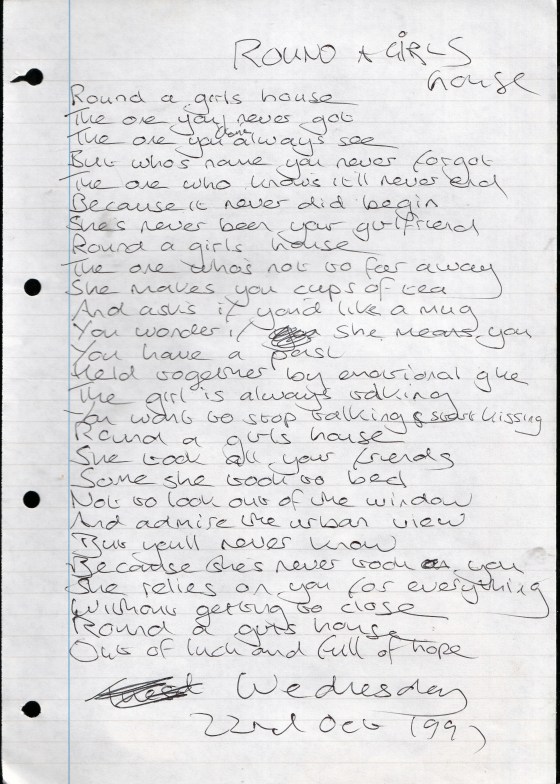 ROUND A GIRLS
house
Round a girls house
The one you never got
The one you don't always see
But who's name you never forgot
The one who knows it'll never end
Because it never did begin
She's never been your girlfriend
Round a girls house
The one who's not to far away
She makes you cups of tea
And asks if you'd like a mug
You wonder if she means you
You have a past
Held together by emotional glue
The girl is always talking
You want to stop talking & start kissing
Round a girls house
She took all your friends
Some she took to bed
Not to look out of the window
And admire the urban view
But you'll never know
Because she's never took on you
She relies on you for everything
Without getting to close
Round a girls house
Out of luck and full of hope
Wednesday
22nd Oct 1997